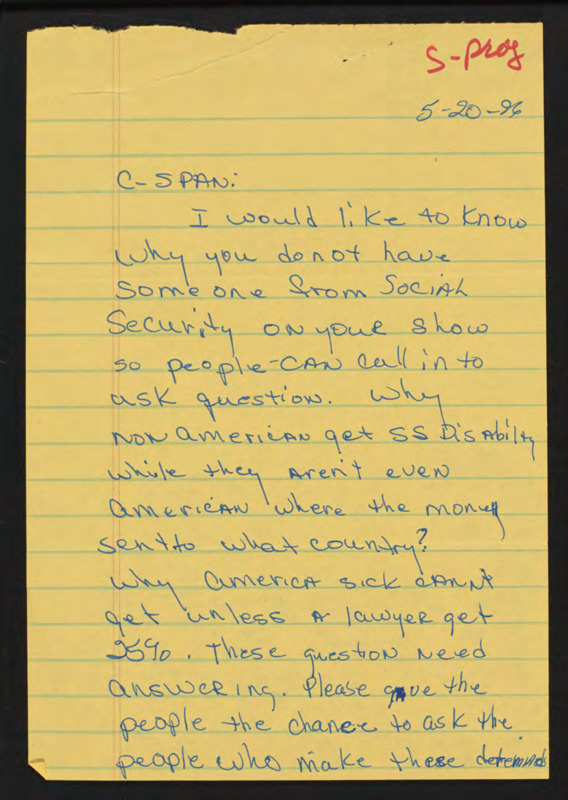 S-prog
5-20-96
C-SPAN:
I would like to know
why you do not have
some one from Social
Security on your show
so people CAN call in to
ask question. Why
non american get SS Disabilty
while they aren't even
american where the money
sent to what country?
Why america sick cann't
get unless a lawyer get
25%. These question need
answering. Please gave the
people the chance to ask the
people who make these